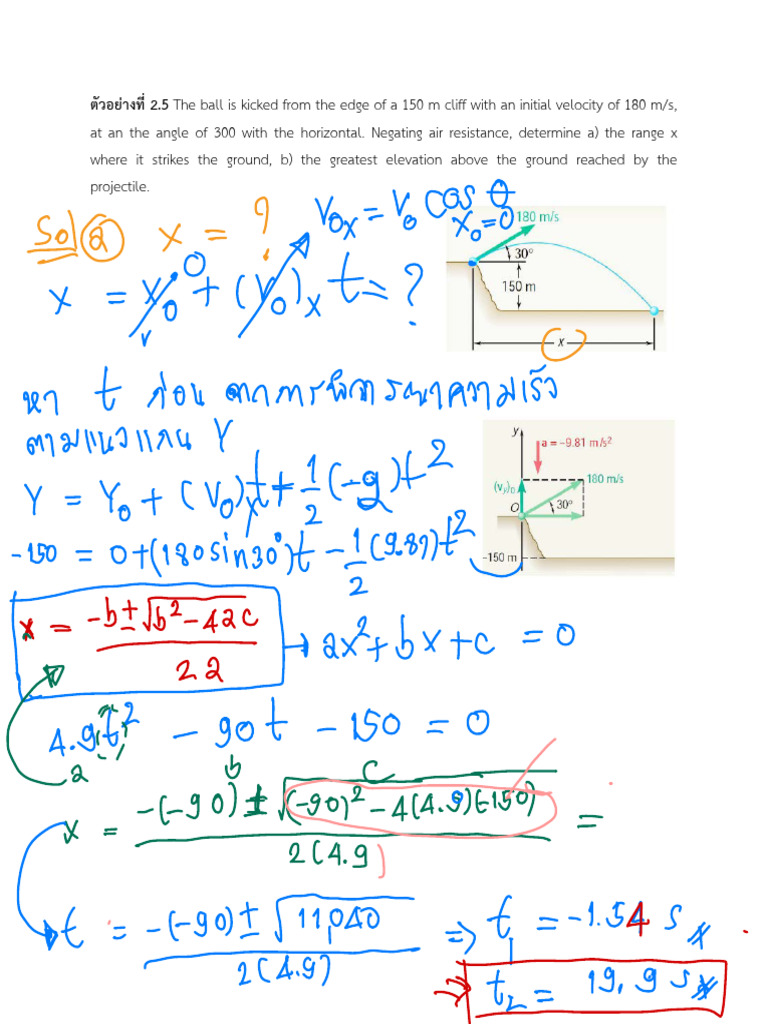 ตัวอย่างที่ 2.5 The ball is kicked from the edge of a 150 m cliff with an initial velocity of 180 m/s,
at an the angle of 300 with the horizontal. Negating air resistance, determine a) the range x
where it strikes the ground, b) the greatest elevation above the ground reached by the
projectile.
Sol a x = ?
V₀ₓ = V₀ cos θ
x₀ = 0
180 m/s
30°
150 m
x
x = x₀ + (v₀)ₓ t = ?
0
หา t ก่อน จากการพิจารณาความเร็ว
ตามแนวแกน Y
y
a = −9.81 m/s²
(vy)₀
180 m/s
O
30°
−150 m
Y = Y₀ + (v₀)y t + 1/2 (-g) t²
-150 = 0 + (180 sin 30°) t - 1/2 (9.81) t²
x = -b ± √b² - 4ac / 2a → ax² + bx + c = 0
4.9t² - 90t - 150 = 0
a b c
x = -(-90) ± √(-90)² - 4(4.9)(-150) / 2(4.9) =
t = -(-90) ± √11,040 / 2(4.9) ⇒ t₁ = -1.54 s
⇒ t₂ = 19.9 s